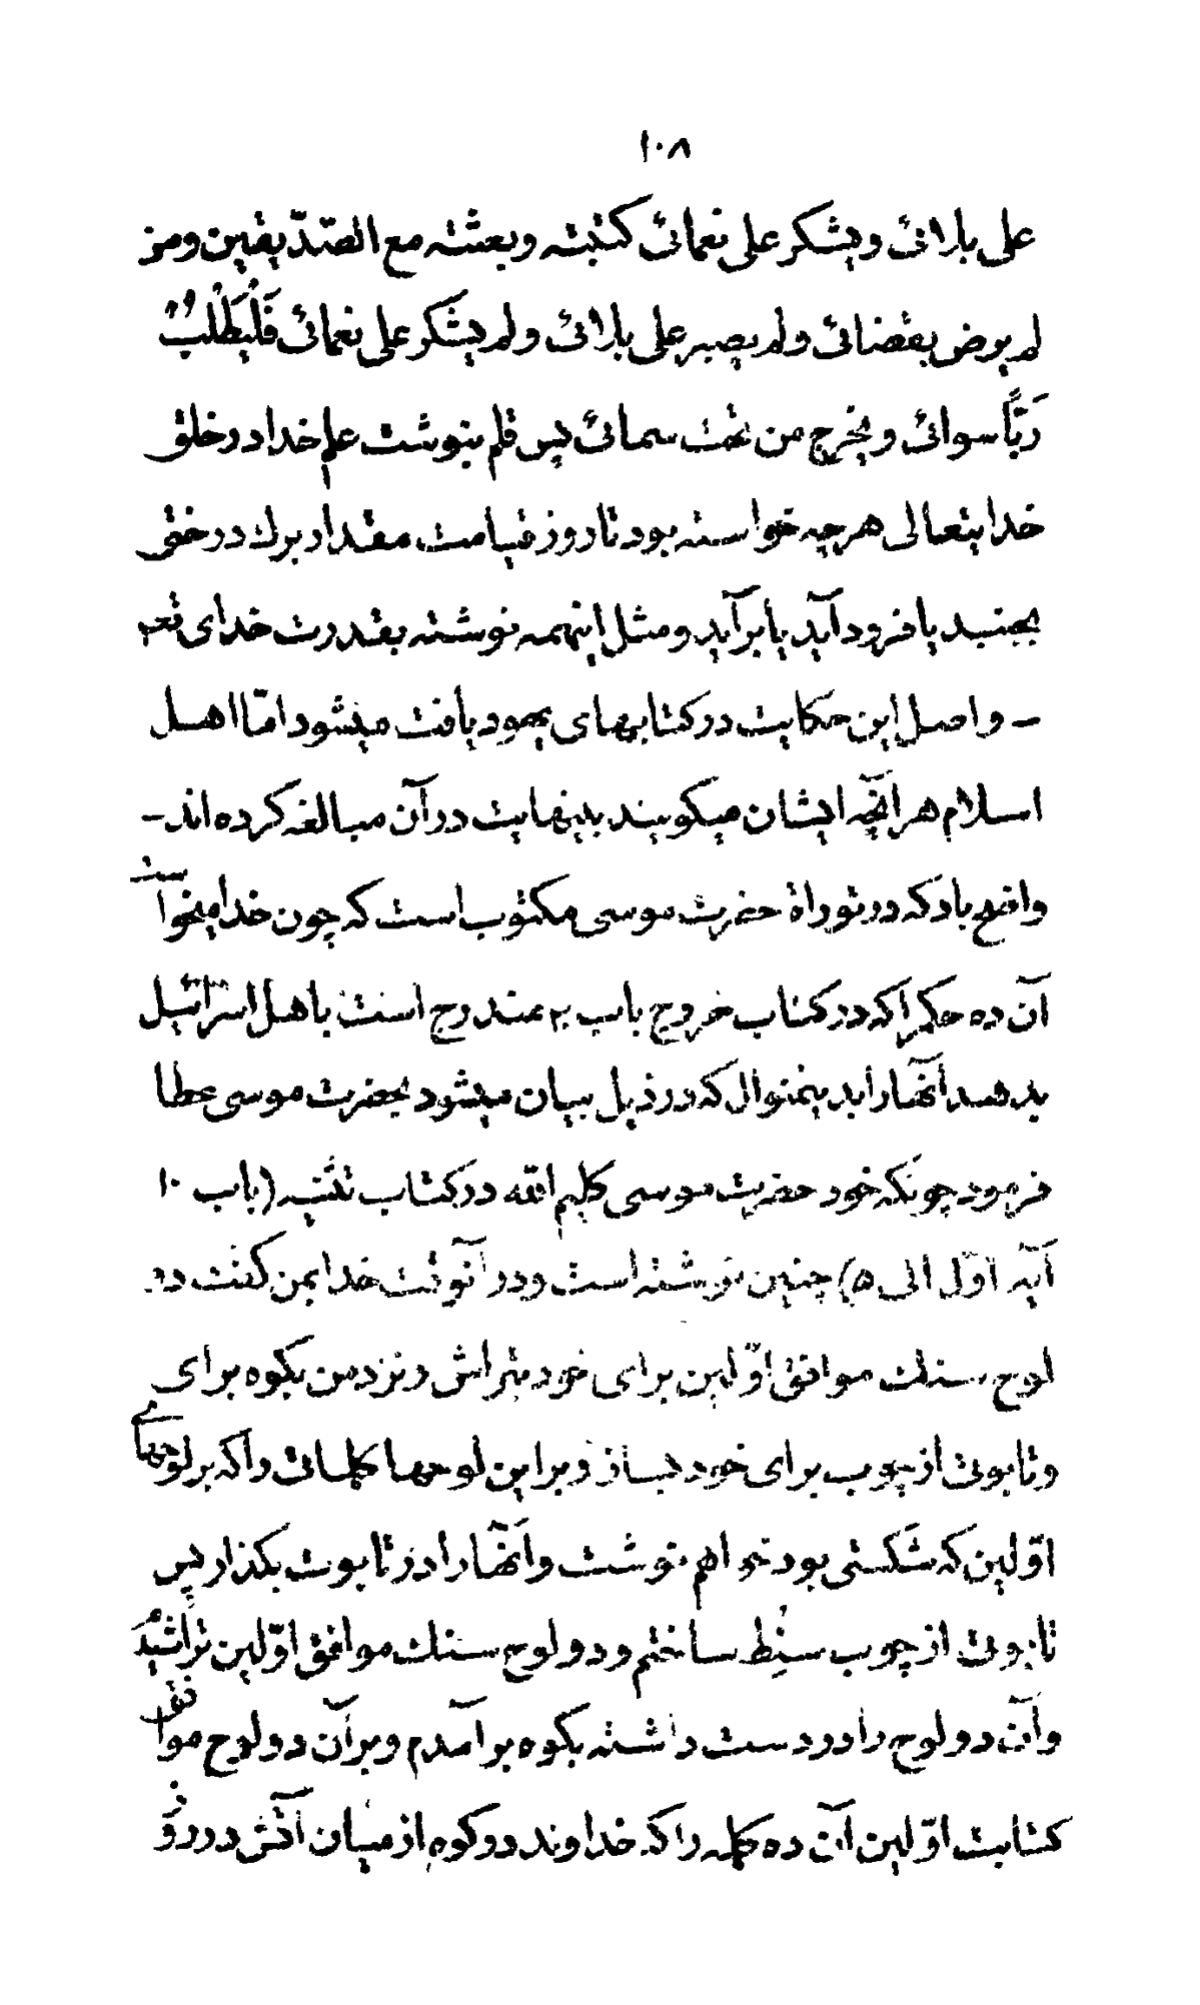 ۱۰۸
علی بلائی ویشکر علی نعمائی کتبته وبعثته مع الصّدّیقین ومن
لم یرض بقضائی ولم یصبر علی بلائی ولم یشکر علی نعمائی فَلْیَطْلُبْ
رَبّاً سوائی ویخرج من تحت سمائی پس قلم بنوشت علم خدا در خلق
خدایتعالی هرچه خواسته بود تا روز قیامت مقدار برك درختی
بجنبد یا فرود آید یا برآید ومثل اینهمه نوشته بقدرت خدای تعم
– واصل این حکایت در کتابهای یهود یافت میشود امّا اهل
اسلام هر آنچه ایشان میکویند بینهایت در آن مبالغه کرده اند –
واضح باد که در توراة حضرت موسی مکتوب است که چون خدا میخواست
آن ده حکم را که در کتاب خروج باب ۲۰ مندرج است باهل اسرائیل
بدهد آنها را بدینمنوال که در ذیل بیان میشود بحضرت موسی عطا
فرمود چونکه خود حضرت موسی کلیم الله در کتاب تثنیه (باب ۱۰
آیه اوّل الی ۵) چنین نوشته است ودر آنوقت خدا بمن کفت دو
لوح سنك موافق اوّلین برای خود بتراش ونزد من بکوه برای
وتابوتی از چوب برای خود بساز وبر این لوحها کلماتی را که بر لوحهای
اوّلین که شکستی بود خواهم نوشت وآنها را در تابوت بکذار پس
تابوتی از چوب سنِط ساختم ودو لوح سنك موافق اوّلین تراشیدَم
وآن دو لوح را در دست داشته بکوه برآمدم وبر آن دو لوح موافق
کتابت اوّلین آن ده کلمه را که خداوند در کوه از میان آتش در روز